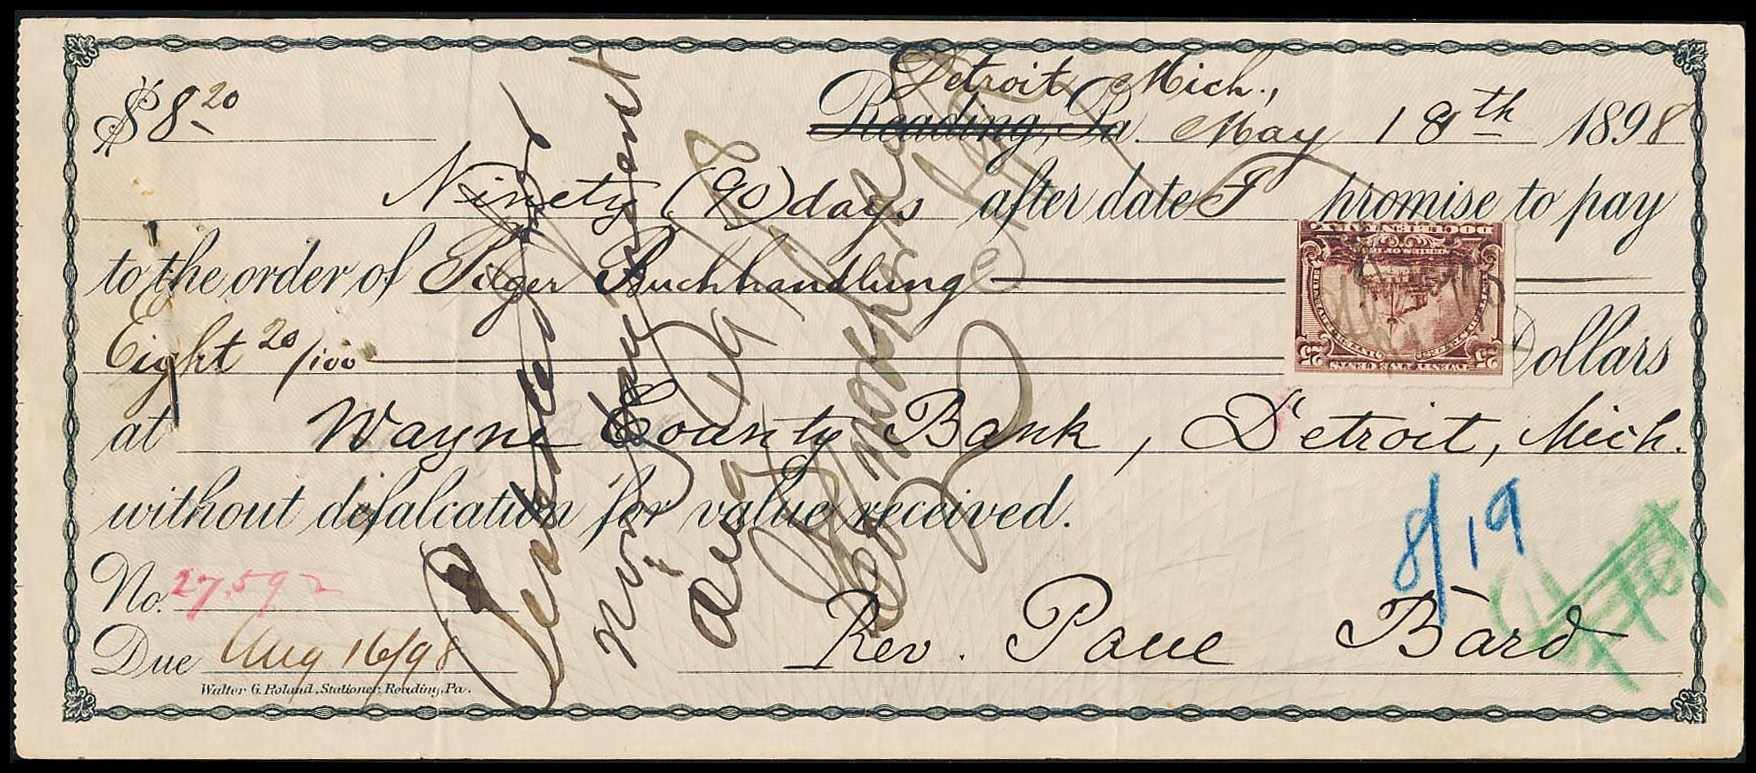 Detroit Mich.,
$8.20 Reading, Pa. May 18th 1898
Ninety (90) days after date I promise to pay
to the order of Pilger Buchhandlung
Eight 20/100 Dollars
at Wayne County Bank, Detroit, Mich.
without defalcation for value received.
No. 27,592
Due Aug 16/98
Rev. Paul Bard
Walter G. Roland, Stationer, Reading, Pa.
8/19
Protested
non payment
Aug 19 98
DOCUMENTARY